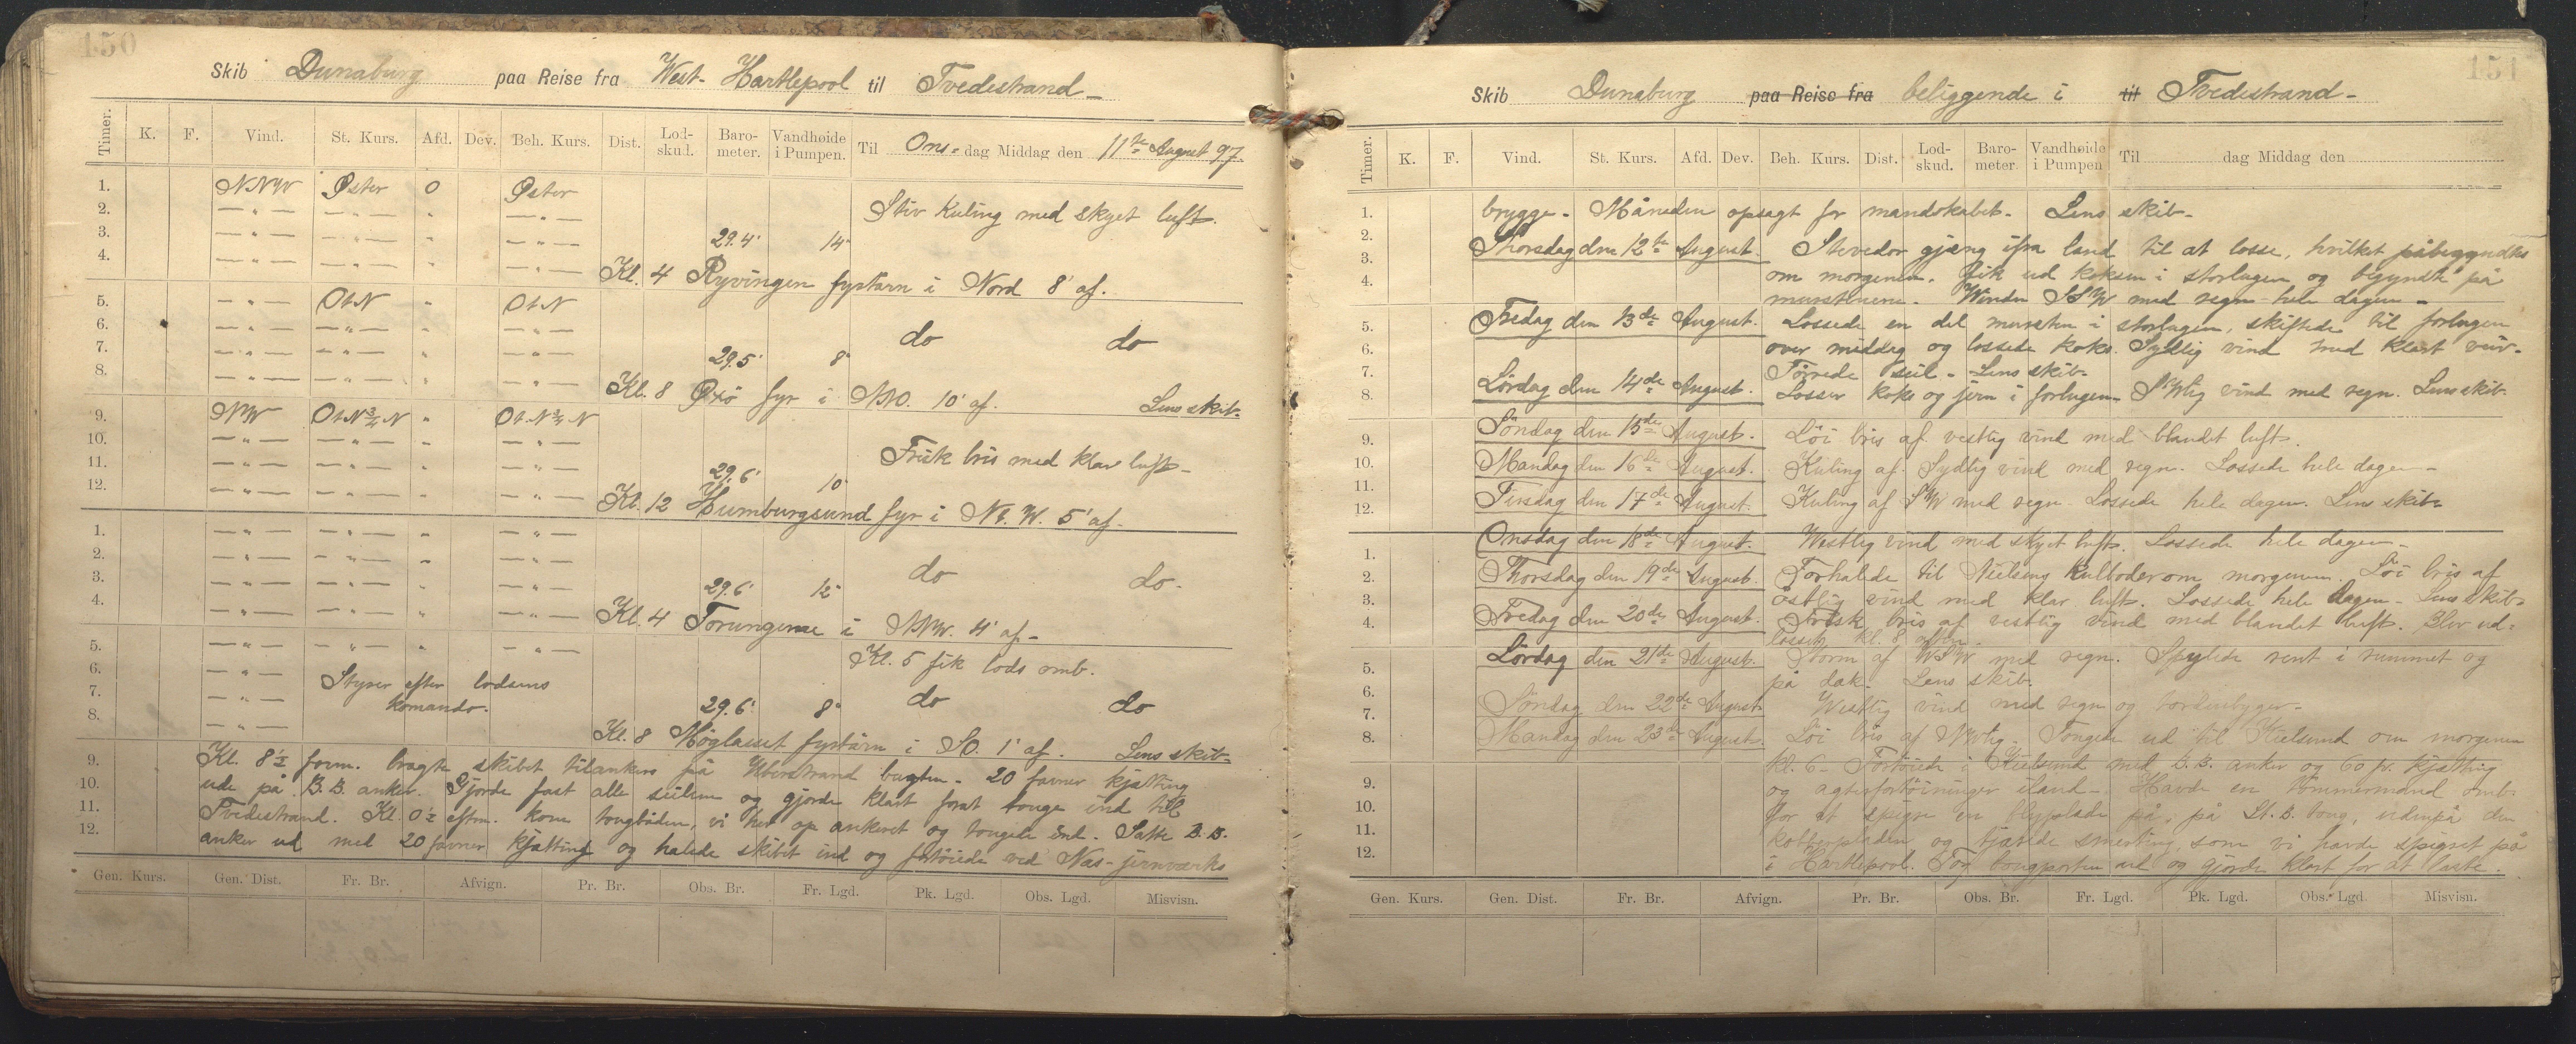 150
Skib Dunaburg paa Reise fra West-Hartlepool til Tvedestrand
Timer. K. F. Vind. St. Kurs. Afd. Dev. Beh. Kurs. Dist. Lod-skud. Baro-meter. Vandhøide i Pumpen. Til Ons-dag Middag den 11te August 97.
1. NNW Øster 0 Øster
2. — „ — — „ — „ — „ — Stiv Kuling med skyet luft.
3. — „ — — „ — „ — „ — 29.4' 14"
4. — „ — — „ — „ — „ — Kl. 4 Ryvingen fyrtårn i Nord 8' af.
5. — „ — OtN „ OtN
6. — „ — — „ — „ — „ — do do
7. — „ — — „ — „ — „ — 29.5' 8"
8. — „ — — „ — „ — „ — Kl. 8 Oxö fyr i NNO. 10' af. Lens skib.
9. NW OtN¾N „ OtN¾N
10. — „ — — „ — „ — „ — Frisk bris med klar luft
11. — „ — — „ — „ — „ — 29.6' 10"
12. — „ — — „ — „ — „ — Kl. 12 Humburgsund fyr i Nt.W. 5' af.
1. — „ — — „ — „ — „ —
2. — „ — — „ — „ — „ — do do
3. — „ — — „ — „ — „ — 29.6' 12"
4. — „ — — „ — „ — „ — Kl. 4 Torungerne i NNW. 4' af
5. — „ — — „ — „ — „ — Kl. 5 fik lods omb.
6. — „ — Styrer efter lodsens
7. — „ — komando. 29.6' 8" do do
8. — „ — Kl. 8 Møglaeset fyrtårn i SO. 1' af. Lens skib
9. Kl. 8½ form. bragte skibet tilankers på bugten. 20 favner kjætting
10. ude på B.B. anker. Gjorde fast alle seilene og gjorde klart forat bouge ind til
11. Tvedestrand. Kl. 0½ eftm. kom bougbåden, vi hev op ankeret og bougede ind. Satte B.B.
12. anker ud med 20 favner kjætting og halede skibet ind og fortöiede ved Nas-jernværks
Gen. Kurs. Gen. Dist. Fr. Br. Afvign. Pr. Br. Obs. Br. Fr. Lgd. Pk. Lgd. Obs. Lgd. Misvisn.
151
Skib Dunaburg paa Reise fra beliggende i til Tvedestrand
Timer. K. F. Vind. St. Kurs. Afd. Dev. Beh. Kurs. Dist. Lod-skud. Baro-meter. Vandhøide i Pumpen Til dag Middag den
1. brygge. Måneden opsagt for mandskabet. Lens skib
2. Thorsdag den 12te August. Stevedor gjæng ifra land til at losse, hvilket påbegyndtes
3. om morgenen. Fik ud koksen i storlugen og begyndte på
4. murstenene. Winden SSW med regn hele dagen
5. Fredag den 13de August. Lossede en del mursten i storlugen, skiftede til forlugen
6. over middag og lossede koks. Sydlig vind med klart veir.
7. Törrede seil. Lens skib
8. Lördag den 14de August. Losser koks og jern i forlugen. SWlig vind med regn. Lens skib.
9. Söndag den 15de August. Löi bris af vestlig vind med blandet luft.
10. Mandag den 16de August. Kuling af Sydlig vind med regn. Lossede hele dagen
11. Tirsdag den 17de August. Kuling af SW med regn Lossede hele dagen. Lens skib
12.
Onsdag den 18de August. Westlig vind med skyet luft. Lossede hele dagen
1.
2. Thorsdag den 19de August. Forhalede til Nielsens Kulboder om morgenen. Löi bris af
3. östlig vind med klar luft. Lossede hele dagen. Lens skib
4. Fredag den 20de August. Frisk bris af vestlig vind med blandet luft. Blev ud-
losset kl. 8 aften.
5. Lördag den 21de August. Storm af WSW med regn. Spylede rent i rummet og
6. på dæk. Lens skib.
7. Söndag den 22de August Westlig vind med regn og tordenbyger
8. Mandag den 23de August. Löi bris af NWlig. Bougede ud til Kielsund om morgenen
kl. 6. Fortöiede i Kielsund med B.B. anker og 60 fv. kjætting
9. og agterfortöininger iland. Havde en tömmermand omb.
10. for at spigre en blyplade på, på St.B. boug, udenpå den
11. og tjærede smerting, som vi havde spigret på
12. i Hartlepool. Tog bougporten ud og gjorde klart for at laste.
Gen. Kurs. Gen. Dist. Fr. Br. Afvign. Pr. Br. Obs. Br. Fr. Lgd. Pk. Lgd. Obs. Lgd. Misvisn.